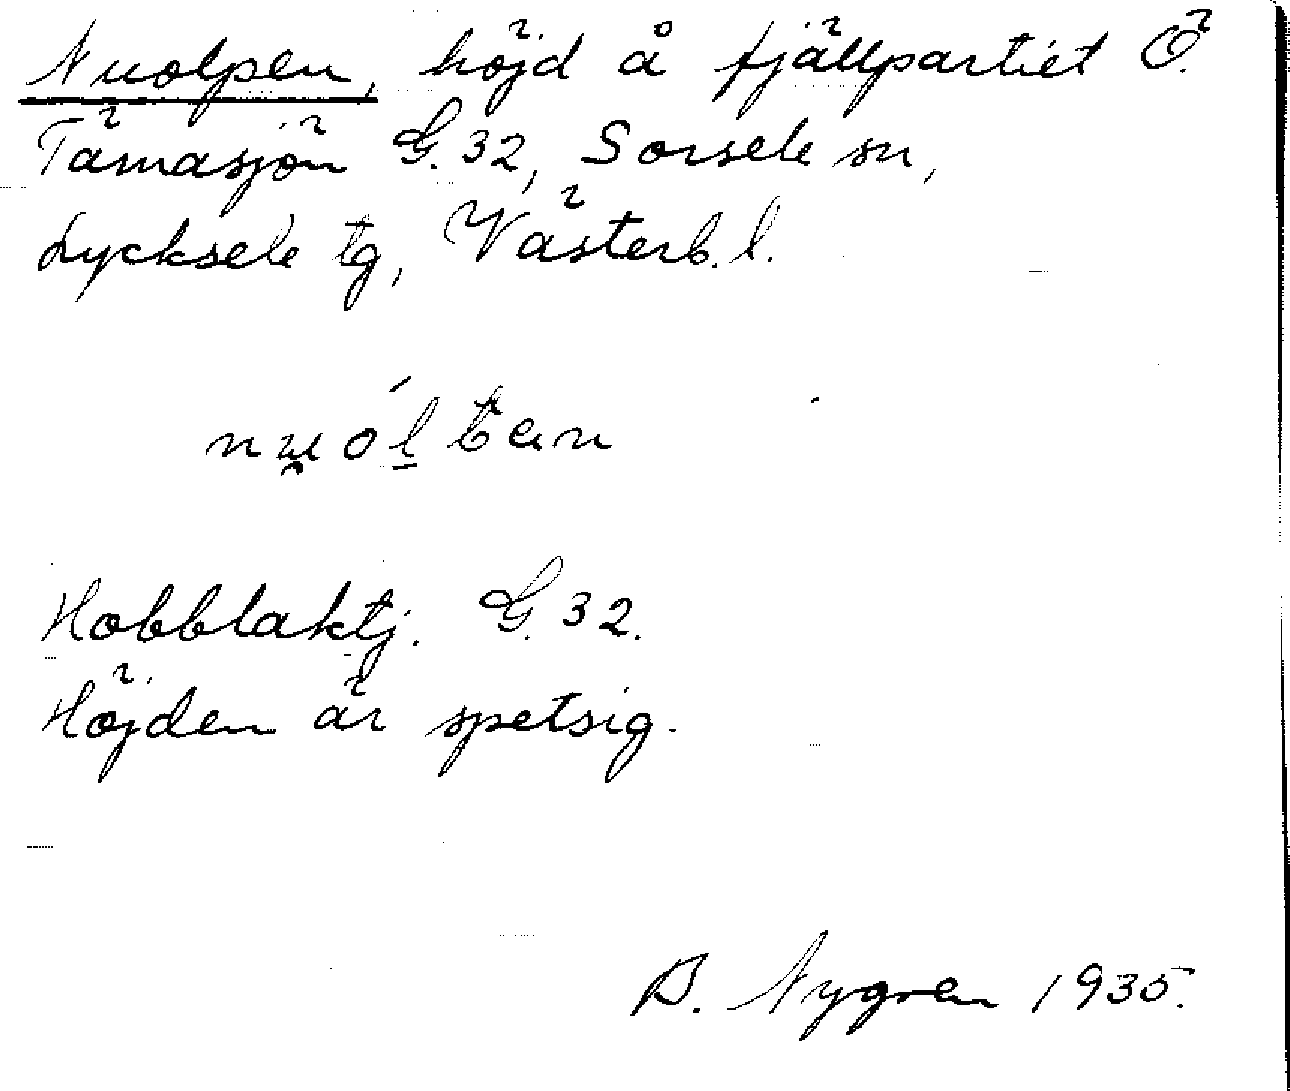 Nuolpen, höjd å fjällpartiet Ö.
Tärnasjön G. 32, Sorsele sn,
Lycksele tg, Västerb. l.
Hobblaktj. G. 32.
Höjden är spetsig.
B. Nygren 1935.